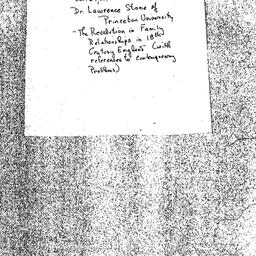 Dr. Lawrence Stone of
Princeton University
"The Revolution in Family
Relationships in 18th
Century England" (with
references to contemporary
Problems)